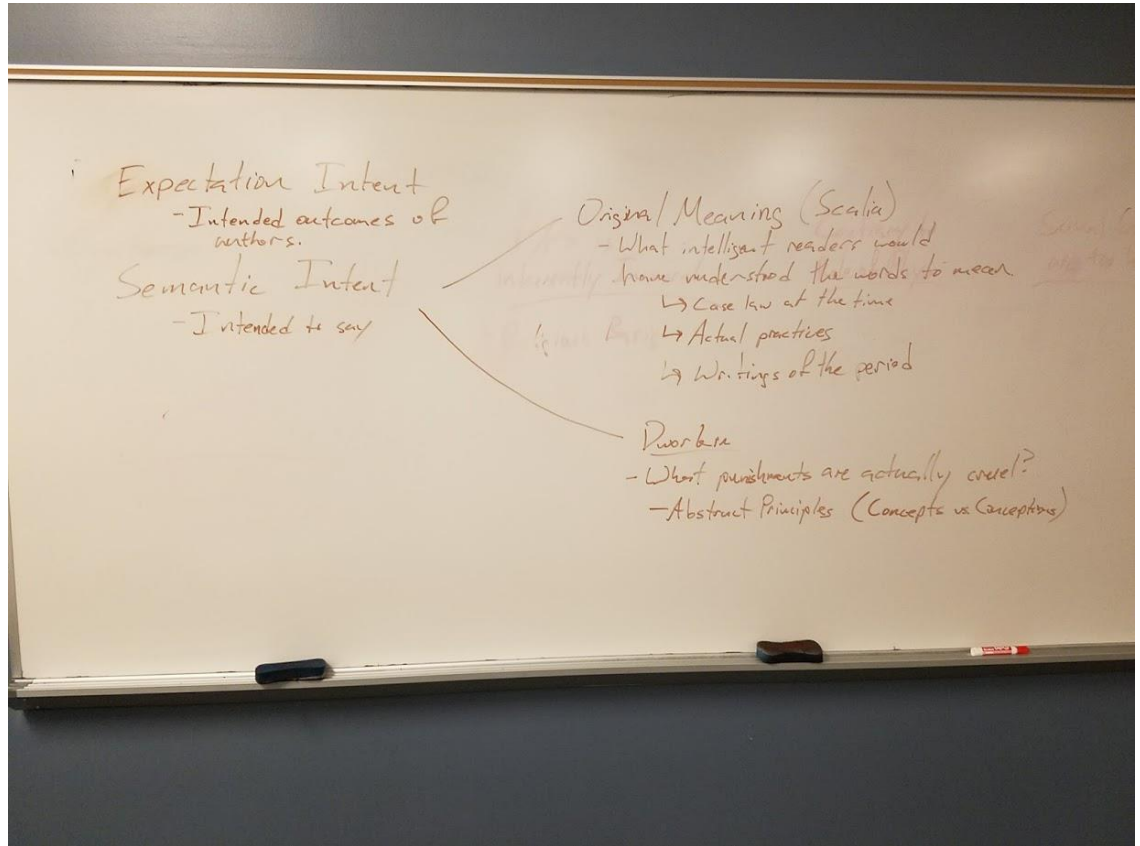 Expectation Intent
- Intended outcomes of
authors.
Semantic Intent
- Intended to say
Original Meaning (Scalia)
- What intelligent readers would
have understood the words to mean
↳ Case law at the time
↳ Actual practices
↳ Writings of the period
Dworkin
- What punishments are actually cruel?
- Abstract Principles (Concepts vs Conceptions)